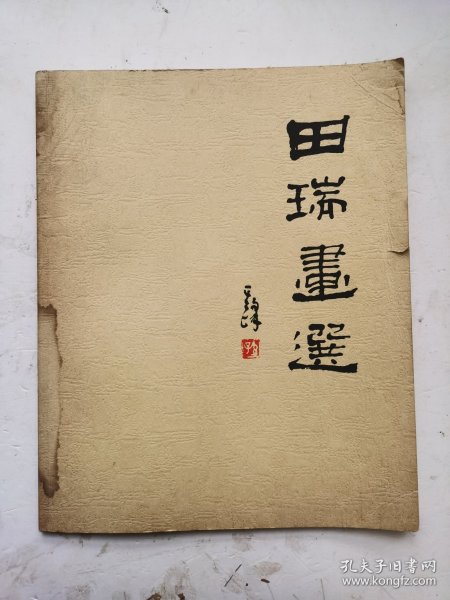 田瑞畫選
孔夫子旧书网
www.kongfz.com